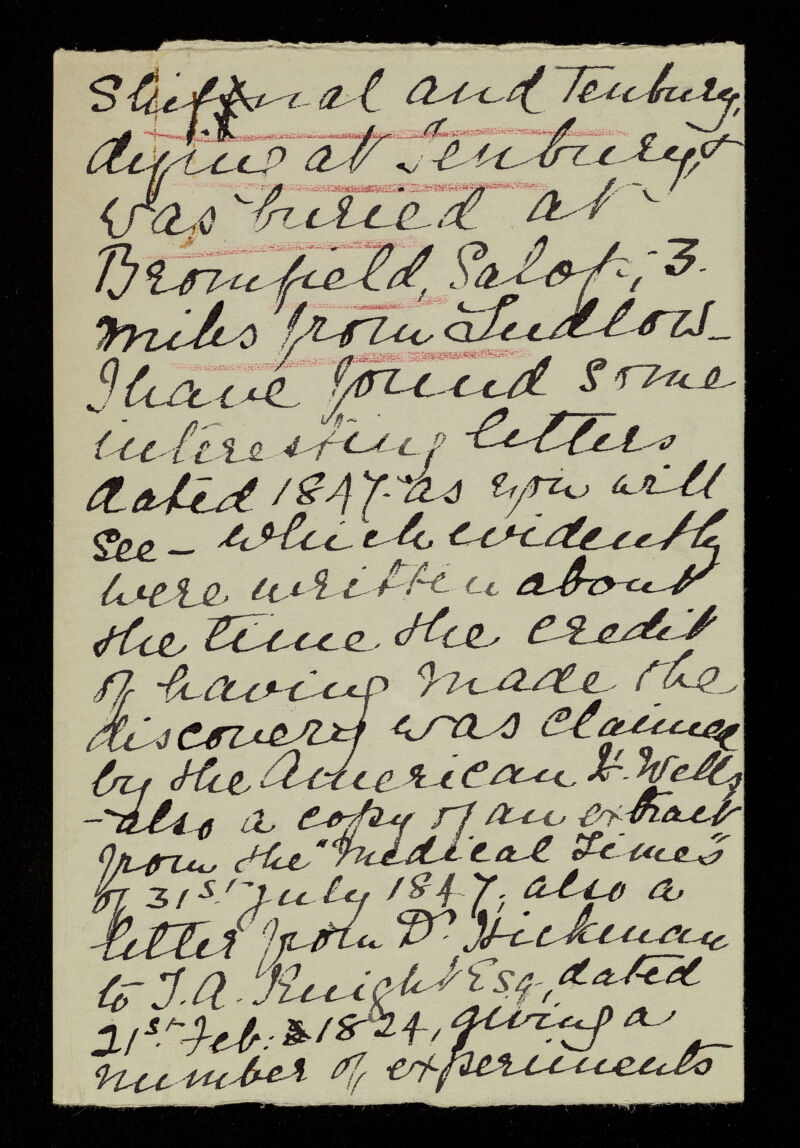 Shifnal and Tenbury,
dying at Tenbury, &
was buried at
Bromfield, Salop; 3.
miles from Ludlow –
I have found some
interesting letters
dated 1847. as you will
see – which evidently
were written about
the time the credit
of having made the
discovery was claimed
by the American H. Wells
– also a copy of an extract
from the "Medical Times"
of 31st July 1847; also a
letter from Dr Hickman
to T. A. Knight Esq, dated
21st Feb: 1824, giving a
number of experiments